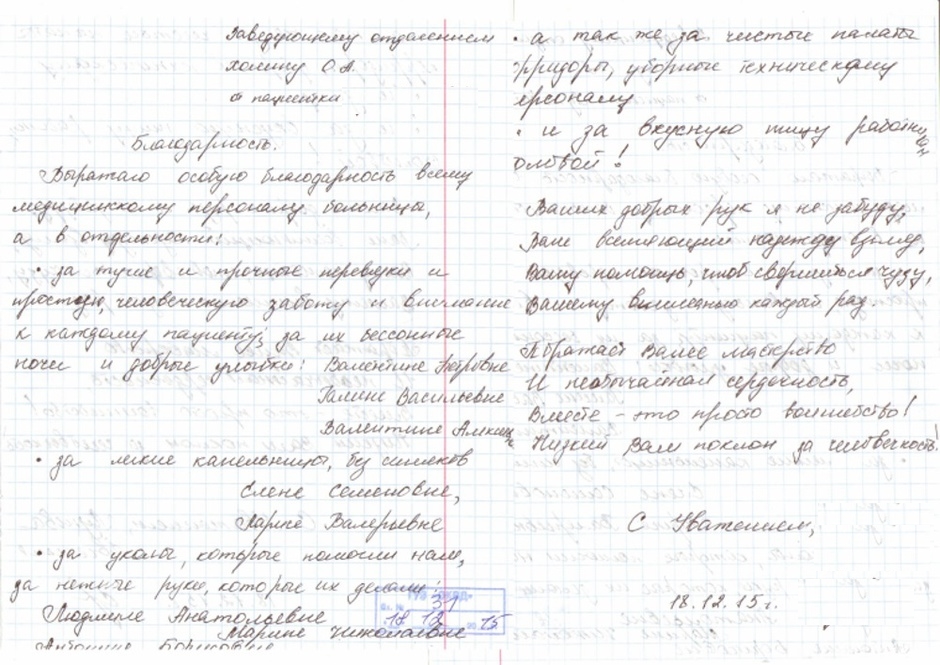 Заведующему отделением
Холину О.А.
от пациентки
Благодарность.
Выражаю особую благодарность всему
медицинскому персоналу больницы,
а в отдельности:
• за тугие и прочные перевязки и
простую, человеческую заботу и внимание
к каждому пациенту; за их бессонные
ночи и добрые улыбки: Валентине Петровне
Галине Васильевне
Валентине Алексан
• за легкие капельницы, без синяков
Елене Семеновне,
Ларисе Валерьевне
• за уколы, которые помогли нам,
за нежные руки, которые их делали:
Людмиле Анатольевне
Марине Николаевне
Антонине Борисовне
31
18 12 2015
• а так же за чистые палаты
орридоры, уборные техническому
ерсоналу
• и за вкусную пищу работни
цам
оловой!
Ваших добрых рук я не забуду,
Ваш вселяющий надежду взгляд,
Вашу помощь, чтоб свершиться чуду,
Вашему вниманью каждый рад.
Поражает Ваше мастерство
И необычайная сердечность,
Вместе – это просто волшебство!
Низкий Вам поклон за человечность!
С Уважением,
18.12.15г.